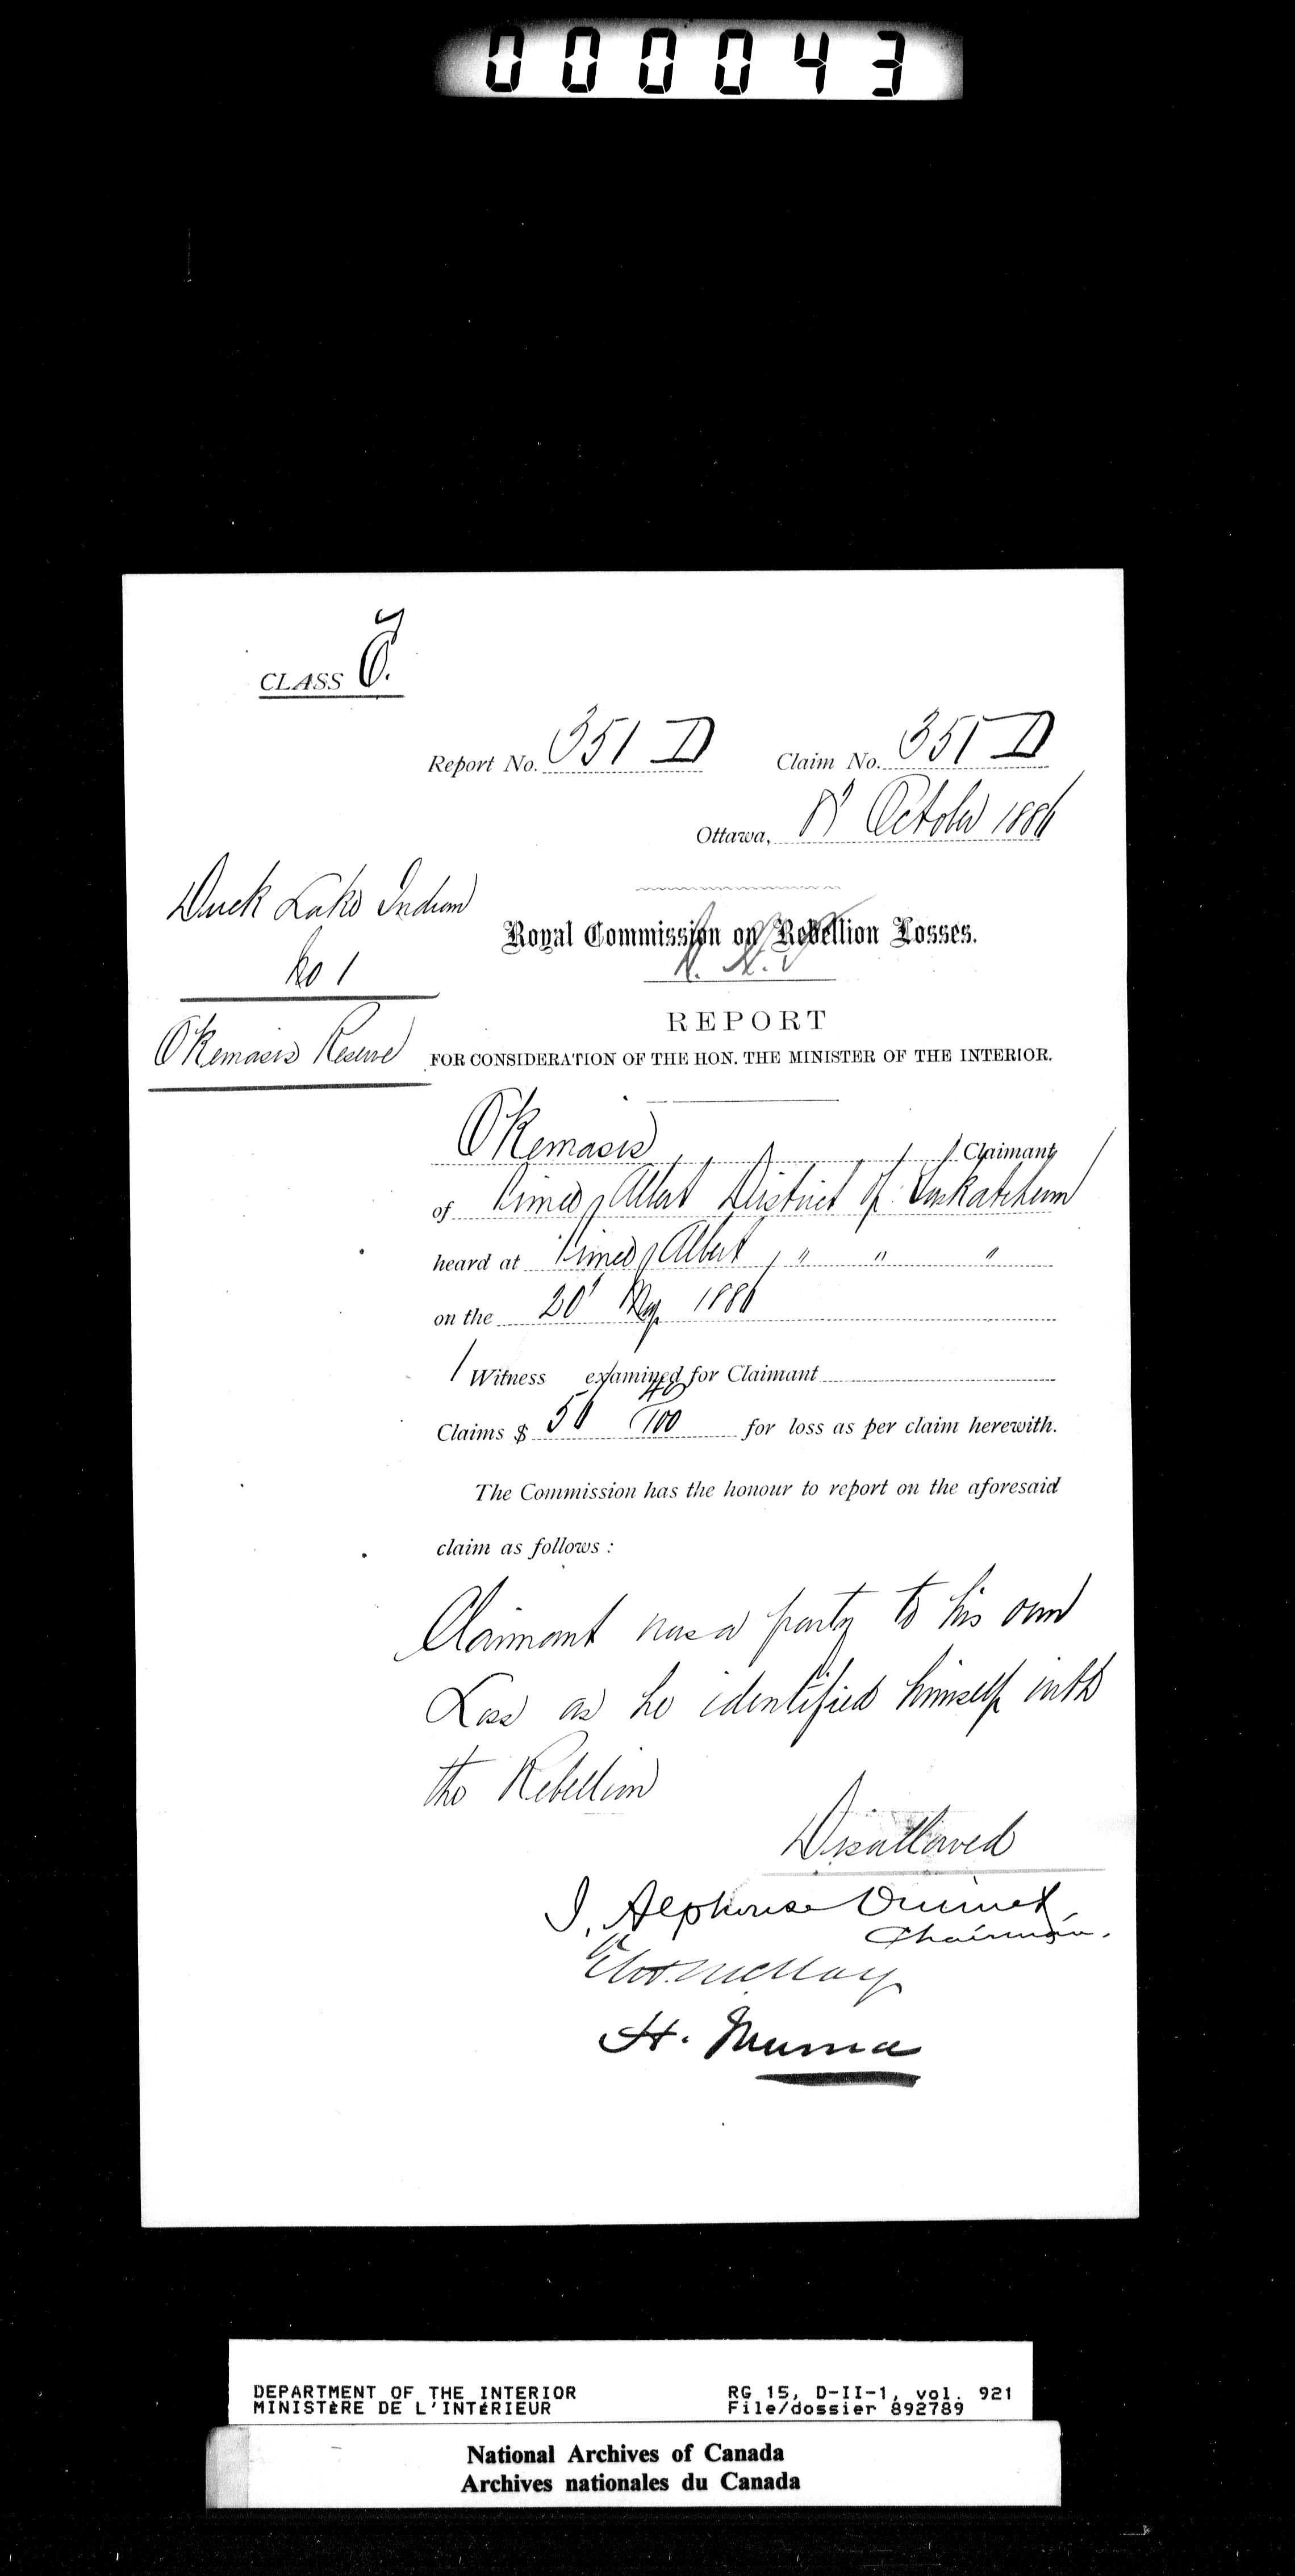 000043
CLASS
Report No. 351 D Claim No. 351 D
Ottawa, 8' October 1886
Duck Lake Indian
No 1
Okemasis Reserve
Royal Commission on Rebellion Losses.
REPORT
FOR CONSIDERATION OF THE HON. THE MINISTER OF THE INTERIOR.
Okemasis Claimant
of Prince Albert District of Saskatchewan
heard at Prince Albert, " " "
on the 20' May 1886
1 Witness examined for Claimant
Claims $ 56 40/100 for loss as per claim herewith.
The Commission has the honour to report on the aforesaid
claim as follows :
Claimant was a party to his own
Loss as he identified himself with
the Rebellion
Disallowed
J. Alphonse Ouimet
Chairman.
H. Muma
DEPARTMENT OF THE INTERIOR RG 15, D-II-1, vol. 921
MINISTÈRE DE L'INTÉRIEUR File/dossier 892789
National Archives of Canada
Archives nationales du Canada